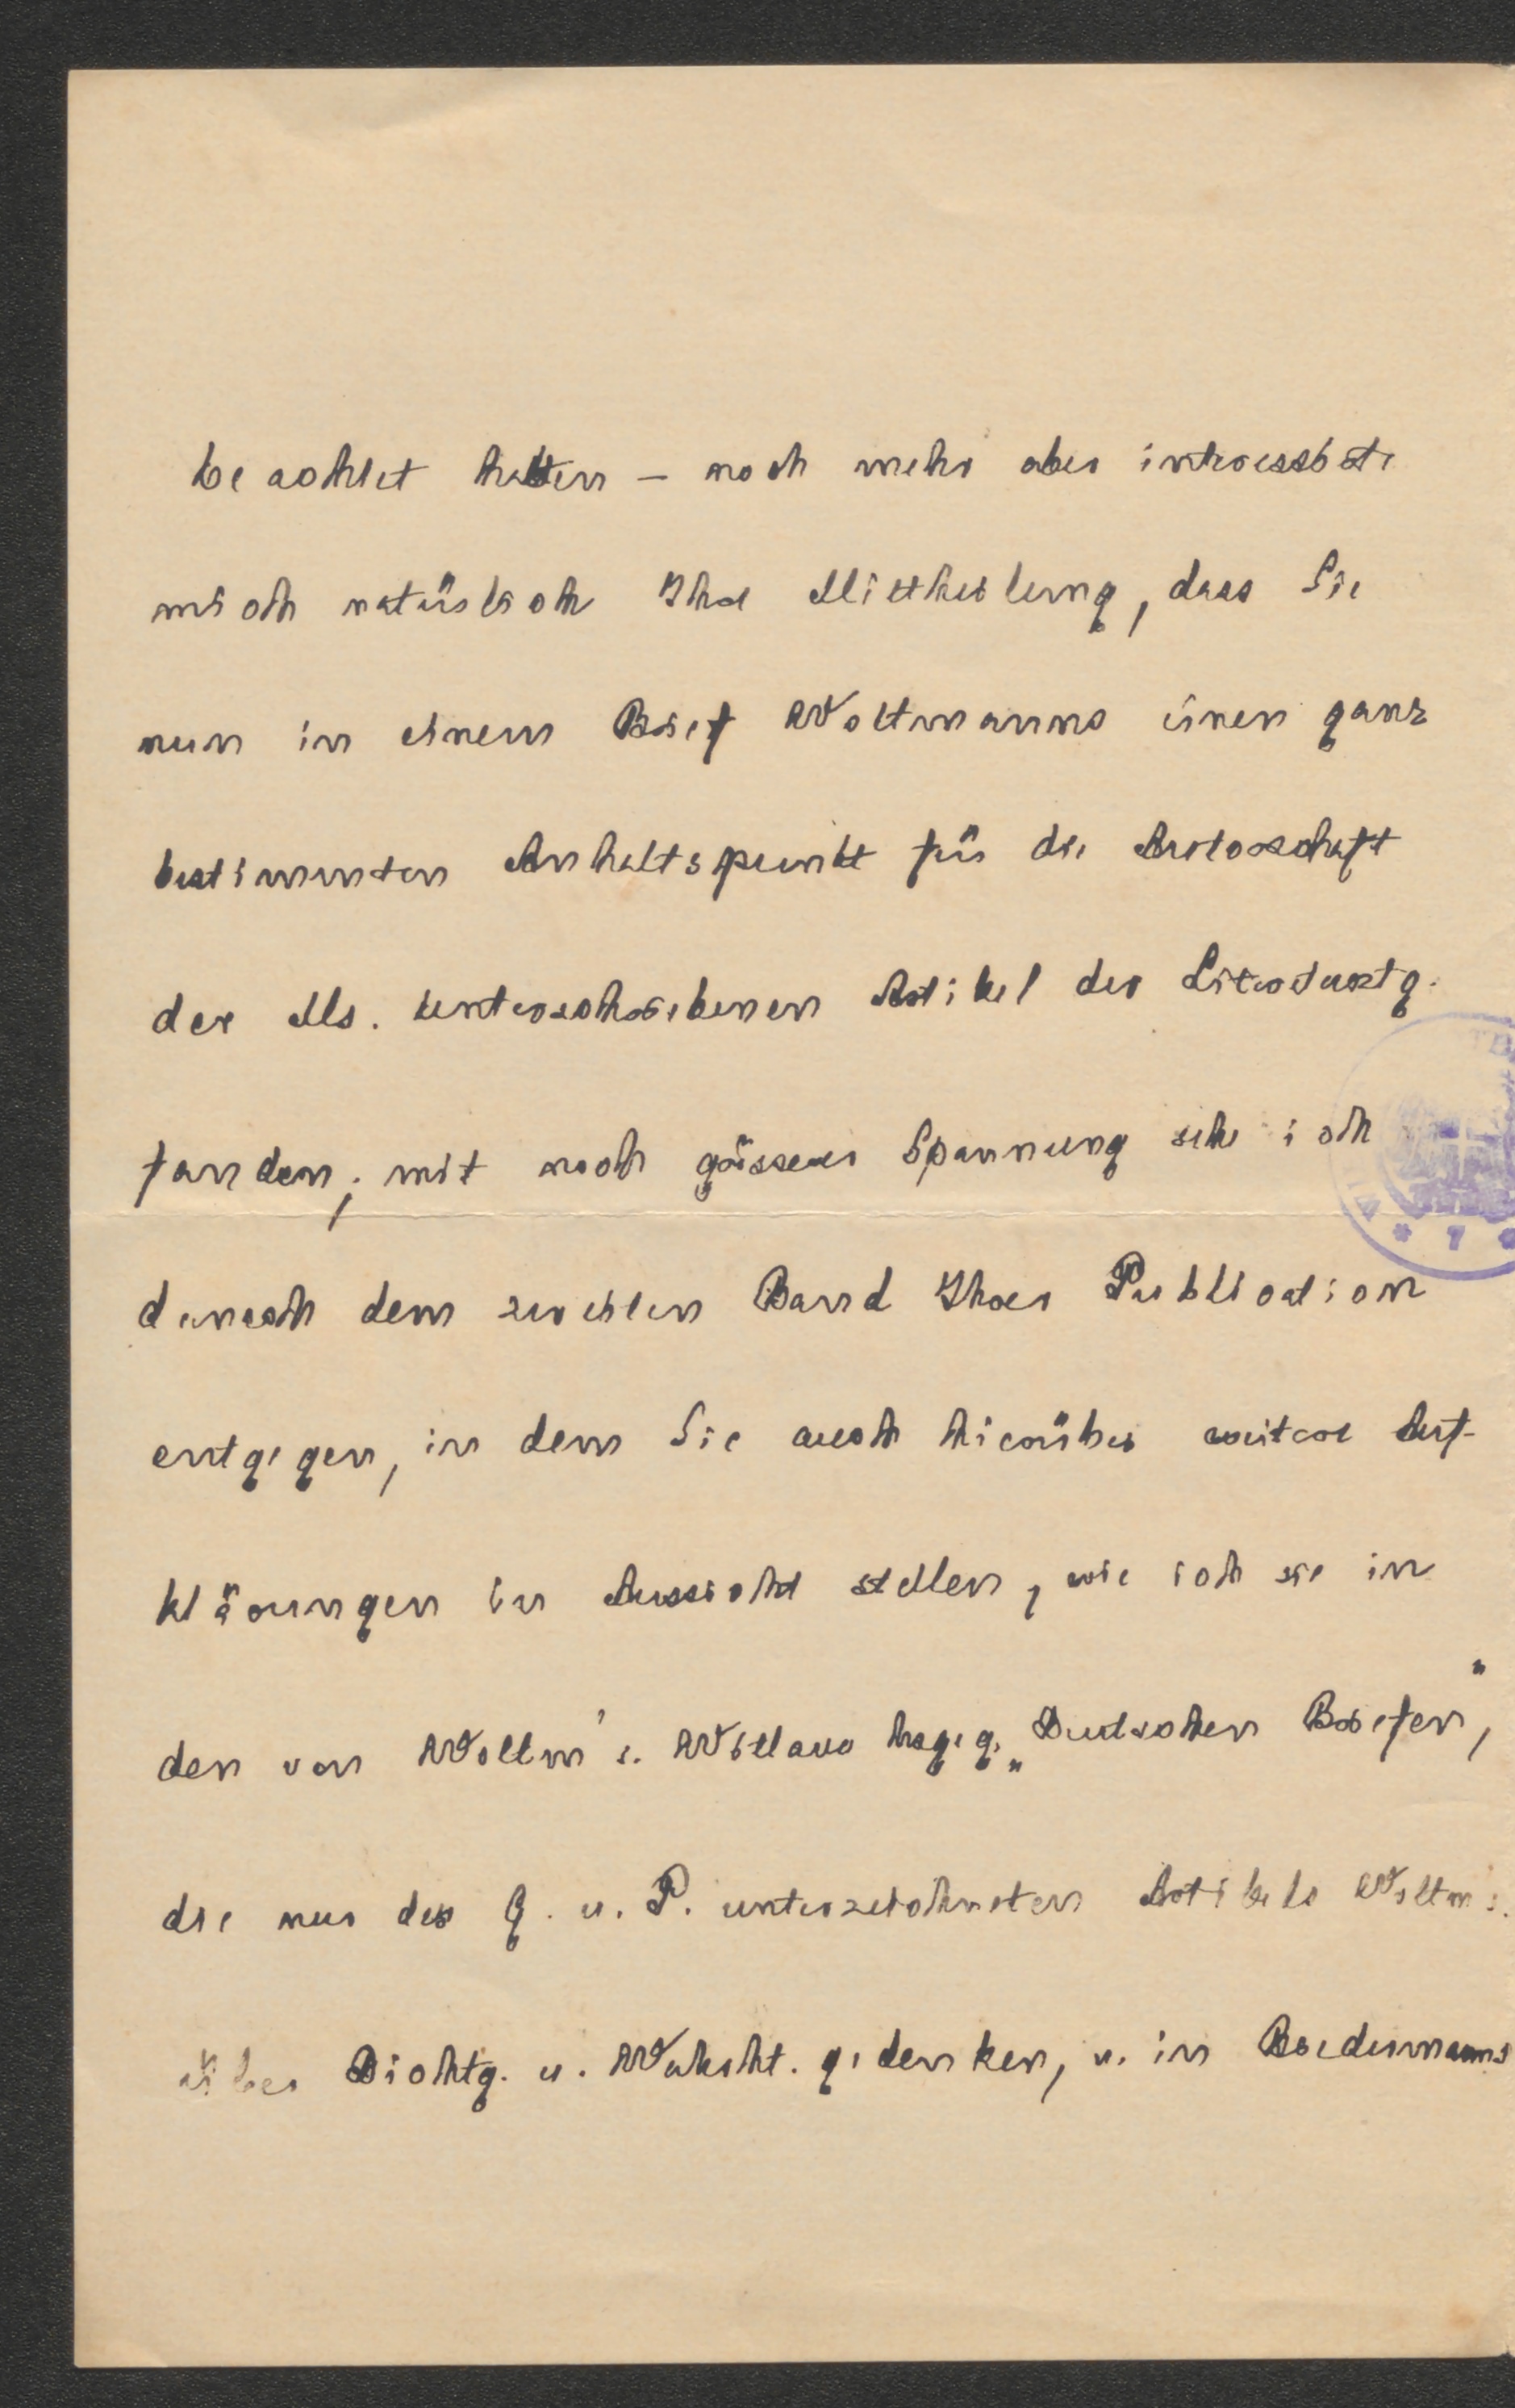 beachtet hatten – noch mehr aber interessirte
mich natürlich Ihre Mittheilung, dass Sie
nun in einem Brief Woltmanns einen ganz
bestimmten Anhaltspunkt für die Autorschaft
der Ms. unterschriebenen Artikel der Literaturztg.
fanden; mit noch grösserer Spannung sehe ich
danach dem zweiten Band Ihrer Publication
entgegen, in dem Sie auch hierüber weitere Auf-
klärungen in Aussicht stellen, wie ich sie in
den von Woltm's. Wittwe hsgeg. „Deutschen Briefen",
die nur des G. u. P. unterzeichneten Artikels Woltm's.
über Dichtg. u. Wahrht. gedenken, u. in Biedermanns
* 7 *